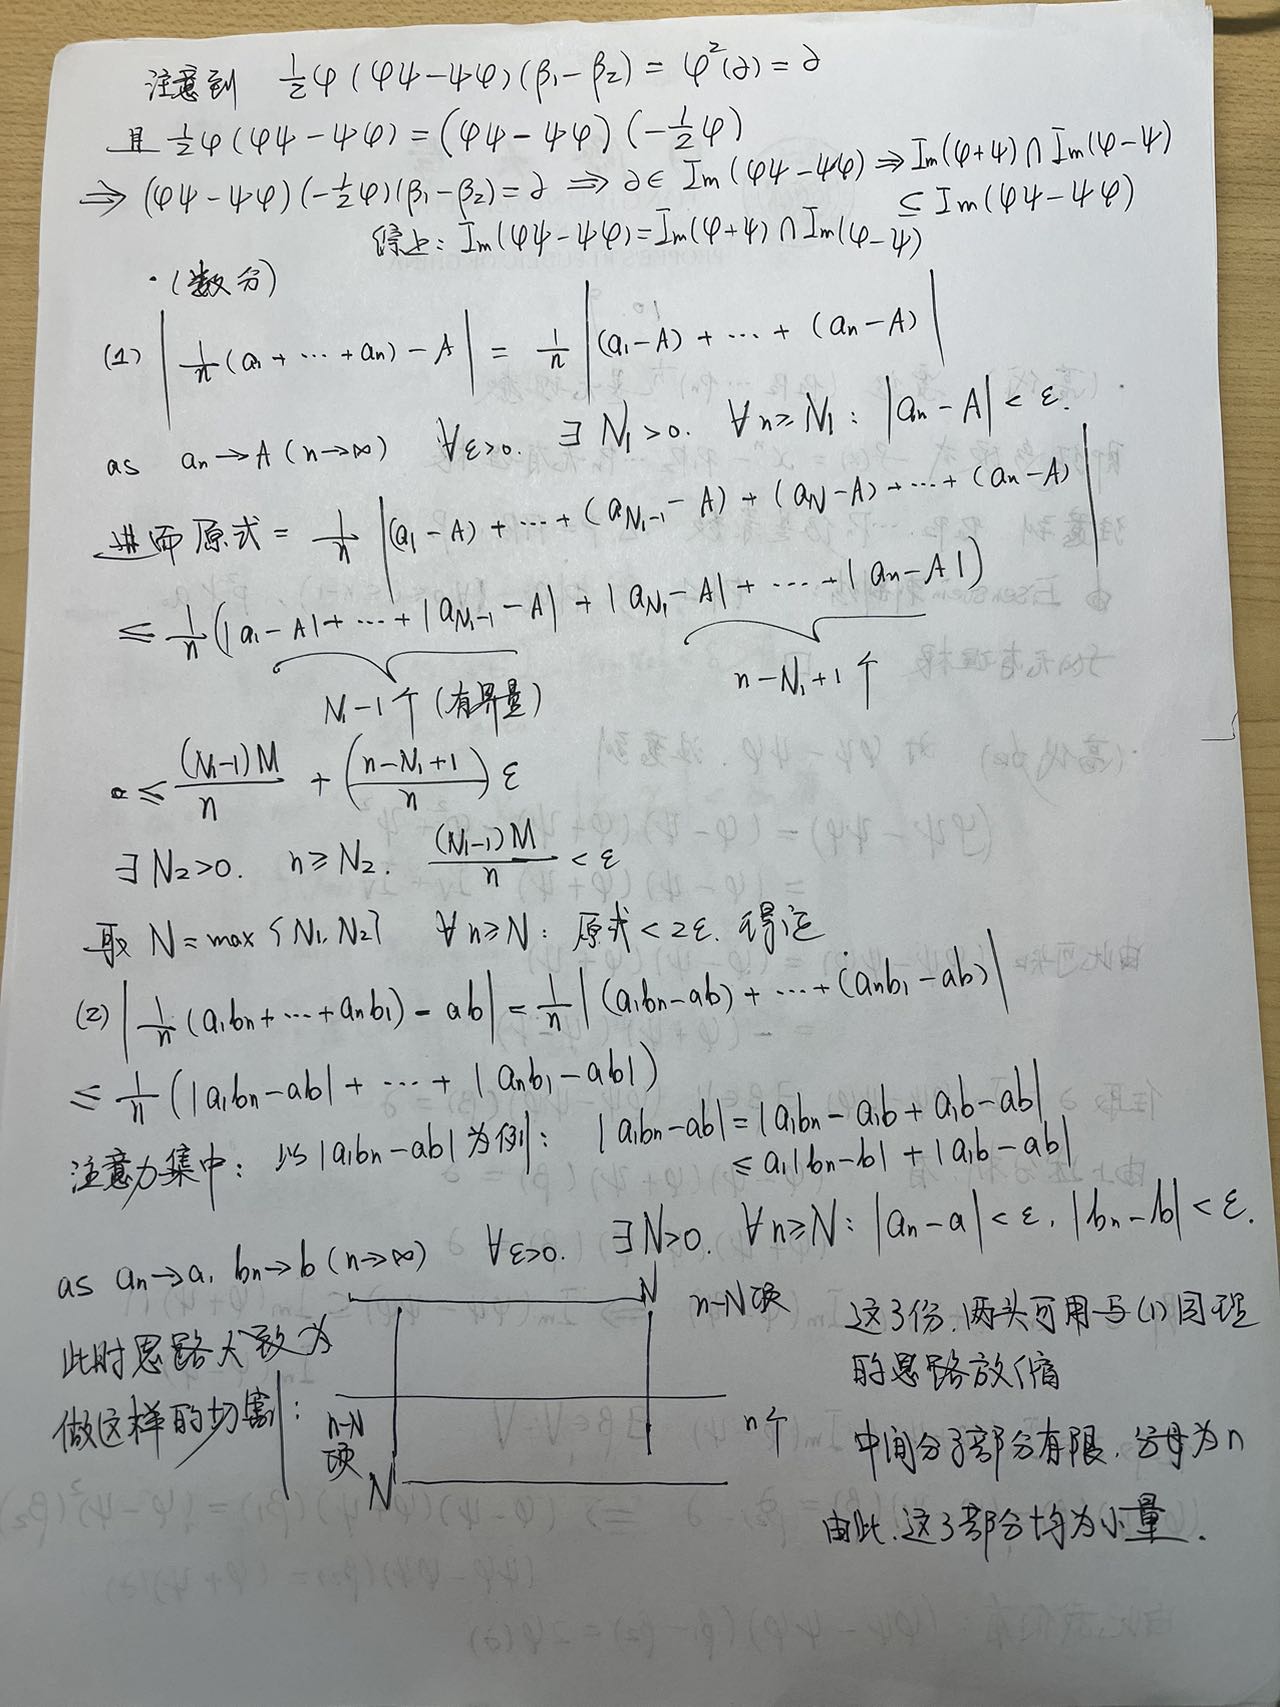 注意到 ½φ(φψ-ψφ)(β₁-β₂) = φ²(∂) = ∂
且 ½φ(φψ-ψφ) = (φψ-ψφ)(-½φ)
⇒ (φψ-ψφ)(-½φ)(β₁-β₂) = ∂ ⇒ ∂∈ Im(φψ-ψφ) ⇒ Im(φ+ψ)∩Im(φ-ψ)
⊆ Im(φψ-ψφ)
综上: Im(φψ-ψφ) = Im(φ+ψ)∩Im(φ-ψ)
·(数分)
(1) |1/n(a₁+⋯+aₙ)-A| = 1/n|(a₁-A)+⋯+(aₙ-A)|
as aₙ→A(n→∞) ∀ε>0. ∃N₁>0. ∀n≥N₁: |aₙ-A|<ε.
进而原式 = 1/n|(a₁-A)+⋯+(a_{N₁-1}-A)+(a_N-A)+⋯+(aₙ-A)|
≤ 1/n(|a₁-A|+⋯+|a_{N₁-1}-A|+|a_{N₁}-A|+⋯+|aₙ-A|)
N₁-1个(有界量) n-N₁+1个
≤ (N₁-1)M/n + ((n-N₁+1)/n)ε
∃N₂>0. n≥N₂. (N₁-1)M/n <ε
取N=max{N₁,N₂} ∀n≥N: 原式<2ε. 得证
(2) |1/n(a₁bₙ+⋯+aₙb₁)-ab| = 1/n|(a₁bₙ-ab)+⋯+(aₙb₁-ab)|
≤ 1/n(|a₁bₙ-ab|+⋯+|aₙb₁-ab|)
注意力集中: 以|a₁bₙ-ab|为例: |a₁bₙ-ab| = |a₁bₙ-a₁b+a₁b-ab|
≤ a₁|bₙ-b|+|a₁b-ab|
as aₙ→a, bₙ→b(n→∞) ∀ε>0. ∃N>0. ∀n≥N: |aₙ-a|<ε, |bₙ-b|<ε.
此时思路大致为
做这样的切割:
N
n-N项
n-N
项
N
n个
这3份, 两头可用与(1)同理
的思路放缩
中间分子部分有限, 分母为n
由此, 这3部分均为小量.